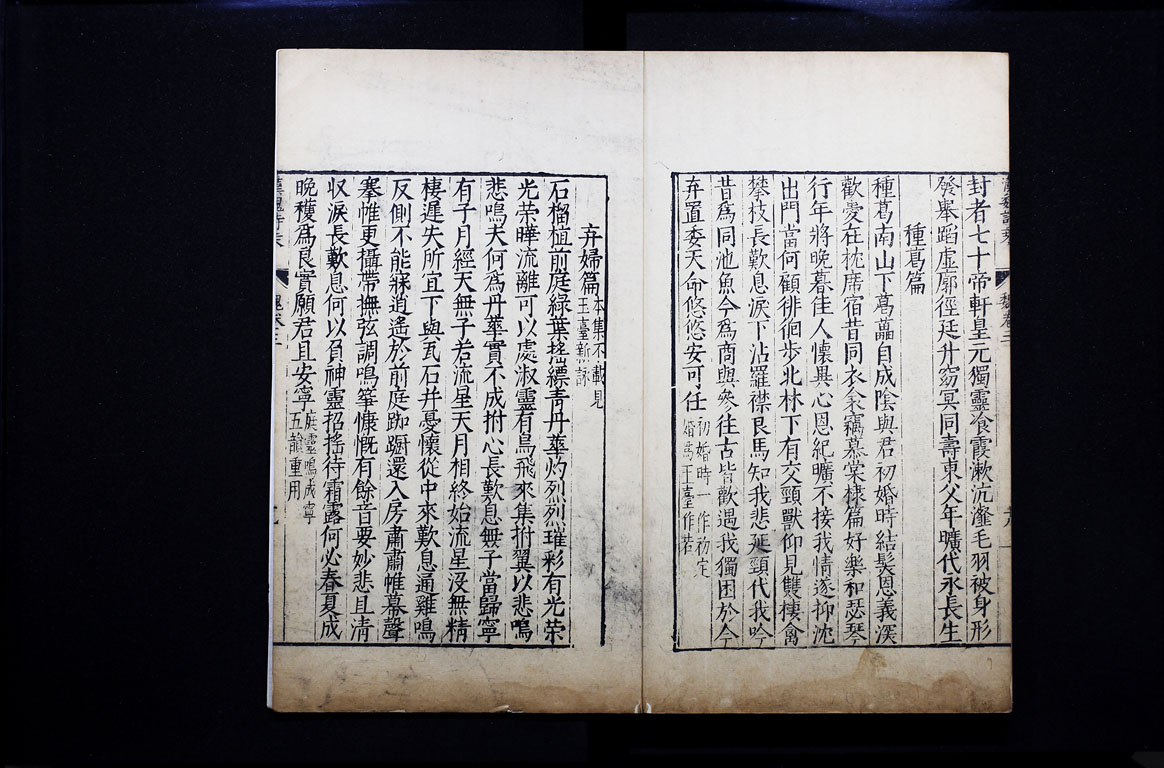 封者七十帝軒皇元獨靈飡霞漱沆瀣毛羽被身形
發舉蹈虛廓徑廷升窈冥同壽東父年曠代永長生
種葛篇
種葛南山下葛藟自成陰與君初婚時結髮恩義深
歡愛在枕席宿昔同衣衾竊慕棠棣篇好樂和瑟琴
行年將晚暮佳人懷異心恩紀曠不接我情遂抑沈
出門當何顧徘徊步北林下有交頸獸仰見雙棲禽
攀枝長歎息淚下沾羅襟良馬知我悲延頸代我吟
昔爲同池魚今爲商與參往古皆歡遇我獨困於今
弃置委天命悠悠安可任
初婚時一作初定
婚爲玉臺作若
弃婦篇
本集不載見
玉臺新詠
石榴植前庭綠葉搖縹青丹華灼烈烈璀彩有光荣
光荣曄流離可以處淑靈有鳥飛來集拊翼以悲鳴
悲鳴夫何爲丹華實不成拊心長歎息無子當歸寧
有子月經天無子若流星天月相終始流星沒無精
棲遲失所宜下與瓦石并憂懷從中來歎息通雞鳴
反側不能寐逍遙於前庭踟躕還入房肅肅帷幕聲
搴帷更攝帶撫弦調鳴箏慷慨有餘音要妙悲且清
収淚長歎息何以負神靈招搖待霜露何必春夏成
晚穫爲良實願君且安寧
庭靈鳴成寧
五韻重用